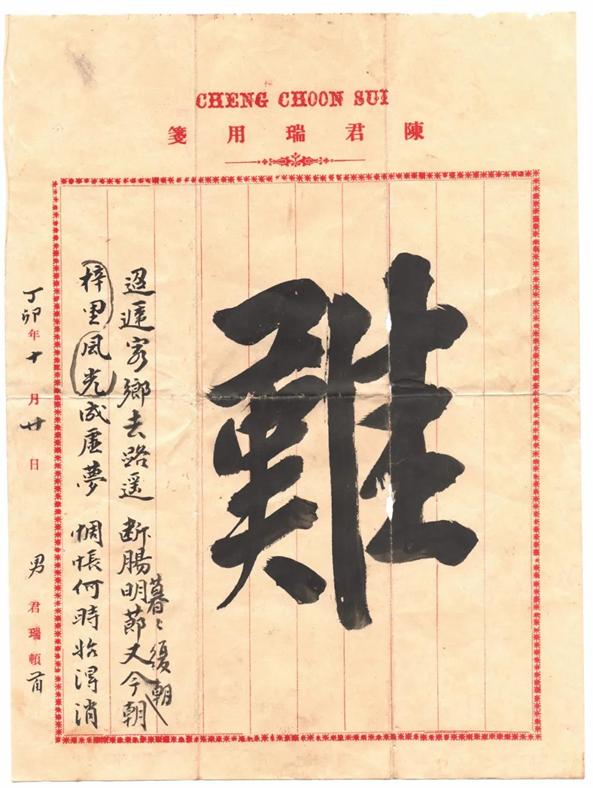 CHENG CHOON SUI
陳君瑞用箋
難
迢遞客鄉去路遙 断腸明節又今朝
暮ミ復朝
梓里風光成虛夢 惆帳何時始得消
丁卯年十月廿日 男君瑞頓首